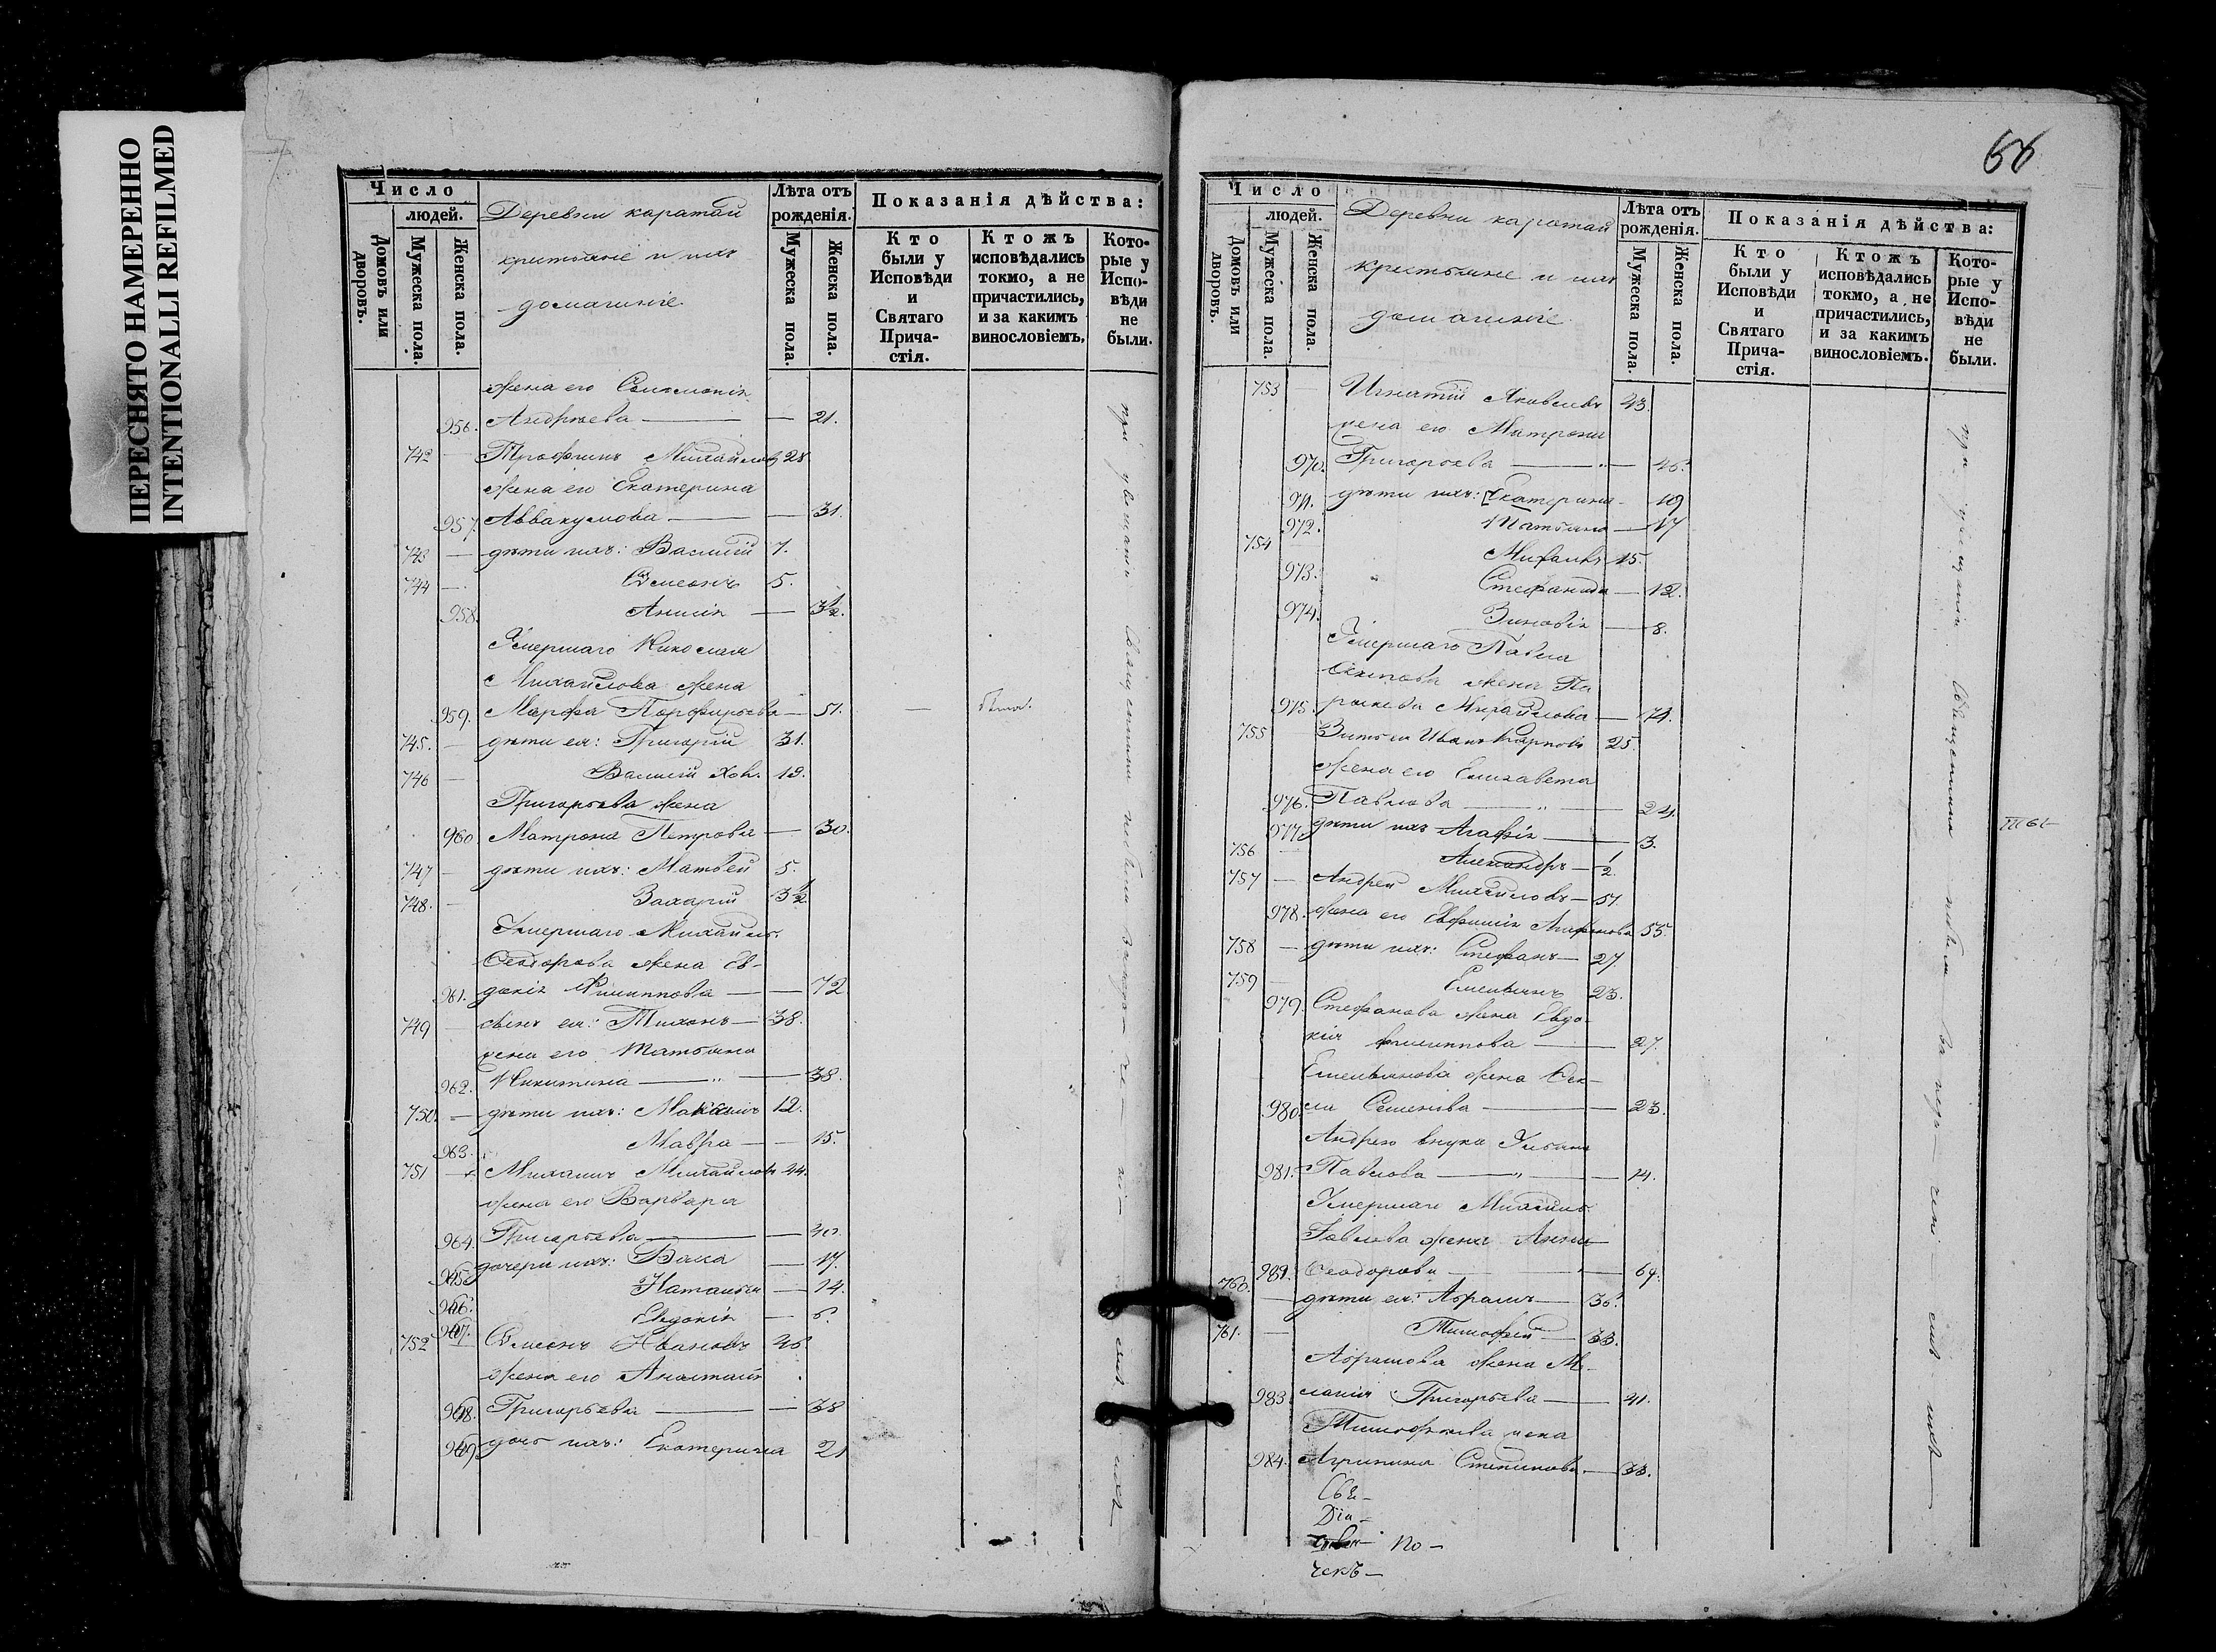 ПЕРЕСНЯТО НАМЕРЕННО
INTENTIONALLI REFILMED
Число
людей.
Домовъ или дворовъ.
Мужеска пола.
Женска пола.
Деревни каратай
крестьяне и ихъ
домашніе.
Лѣта отъ рожденія.
Мужеска пола.
Женска пола.
Показанія дѣйства:
Кто были у Исповѣди и Святаго Причастія.
Ктожъ исповѣдались токмо, а не причастились, и за какимъ винословіемъ.
Которые у Исповѣди не были.
жена его Соломонія
956. Андреева — — 21.
742 — Трофимъ Михайловъ 28
жена его Екатерина
957. Аввакумова — — 31.
743 — дѣти ихъ: Василій 7.
744 — Симеонъ 5.
958. Анисія — 3½.
Умершаго Николая
Михайлова жена
959. Марфа Порфирьева — 51. — была.
745. — дѣти ея: Григорій 31.
746 — Василій Хол. 19.
Григорьева жена
960 Матрона Петрова — 30.
747 — дѣти ихъ: Матвей 5.
748. — Захарій 3½
Умершаго Михаила
Ѳеодорова жена Ев-
961. докія Филиппова — — 72
749 — сынъ ея: Тихонъ — 38.
жена его Татьяна
962. Никитина — „ — 38.
750. — дѣти ихъ: Максимъ 12.
963. Мавра — — 15.
751 — Михаилъ Михайловъ 44.
жена его Варвара
964. Григорьева — — 40.
965 дочери ихъ: Васса — 17.
966. Наталья — 14.
967. Евдокія — 6.
752 — Симеонъ Ивановъ 46
жена его Анастасія
968. Григорьева — — 38
969 дочь ихъ: Екатерина 21
66
Число
людей.
Домовъ или дворовъ.
Мужеска пола.
Женска пола.
Деревни каратай
крестьяне и ихъ
домашніе.
Лѣта отъ рожденія.
Мужеска пола.
Женска пола.
Показанія дѣйства:
Кто были у Исповѣди и Святаго Причастія.
Ктожъ исповѣдались токмо, а не причастились, и за какимъ винословіемъ.
Которые у Исповѣди не были.
753 — Игнатій Яковлевъ 43.
жена его Матрона
970. Григорьева — „ — 46.
971. дѣти ихъ: Екатерина — 19
972. Татьяна — 17
754 — Михаилъ 15.
973. Стефанида — 12.
974. Зиновія — 8.
Умершаго Павла
Осипова жена Па
975. раскева Михайлова — 74.
755 Зять ея Иванъ Карповъ 25.
жена его Елизавета
976. Павлова — „ — 24.
977. дѣти ихъ Агафія — 3.
756 — Александръ — ½
757 — Андрей Михайловъ — 57.
978. жена его Евфимія Агафонова 55.
758 — дѣти ихъ: Стефанъ — 27.
759 — Емельянъ 23.
979. Стефанова жена Евдо-
кія Филиппова — 27.
Емельянова жена Ѳек-
980. ла Семенова — 23.
Андрею внука Ульяна
981. Павлова — „ — 14.
Умершаго Михаила
Павлова жена Анна
982. Ѳеодорова — „ — 69.
760. — дѣти ея: Абрамъ — 36.
761. — Тимофей — 33.
Абрамова жена Ме-
983. ланія Григорьева — 41.
Тимофеева жена
984. Агрипина Степанова. — 33.
Свя-
Діа-
По-
чекъ —